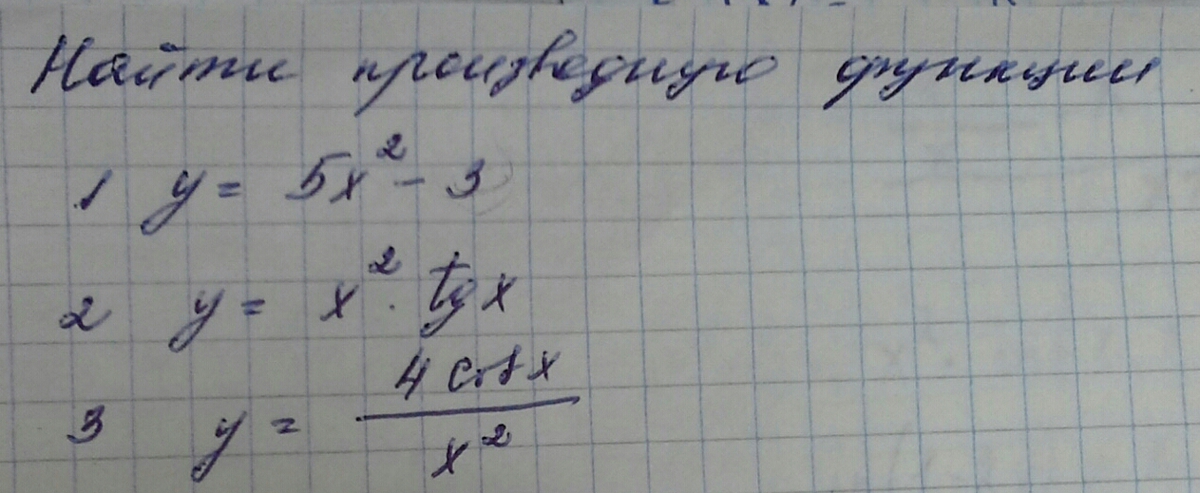 Найти производную функции
1 y = 5x² - 3
2 y = x² · tg x
3 y = \frac{4 cos x}{x²}